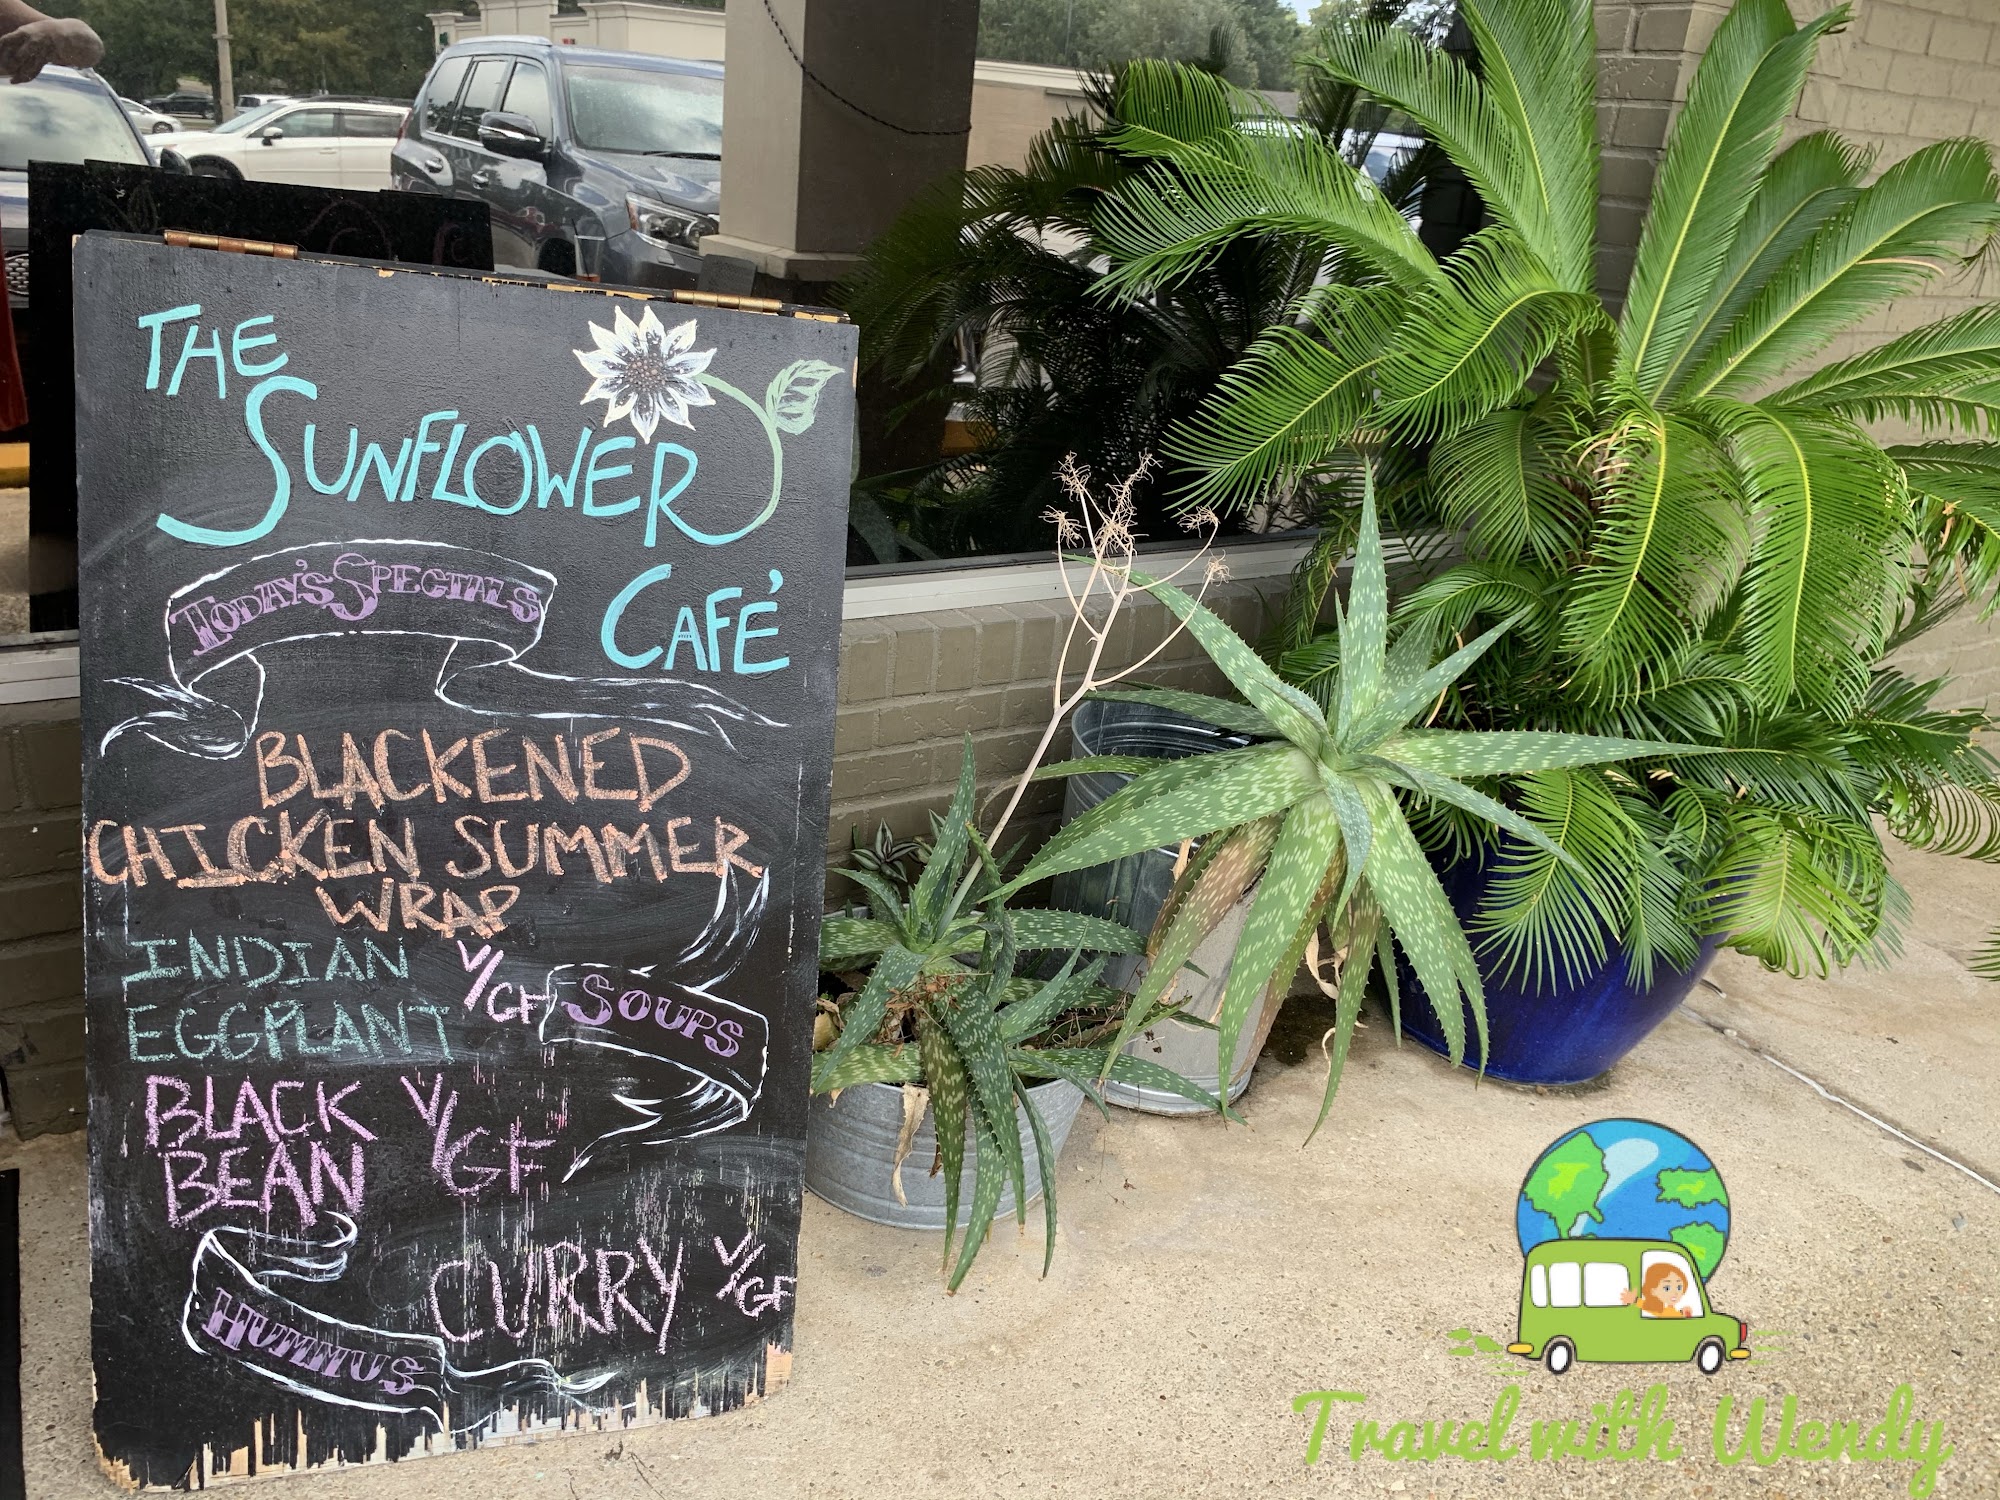 THE
SUNFLOWER
CAFÉ
TODAY'S SPECIALS
BLACKENED
CHICKEN SUMMER
WRAP
INDIAN V/GF
EGGPLANT
SOUPS
BLACK V/GF
BEAN
HUMMUS
CURRY V/GF
Travel with Wendy